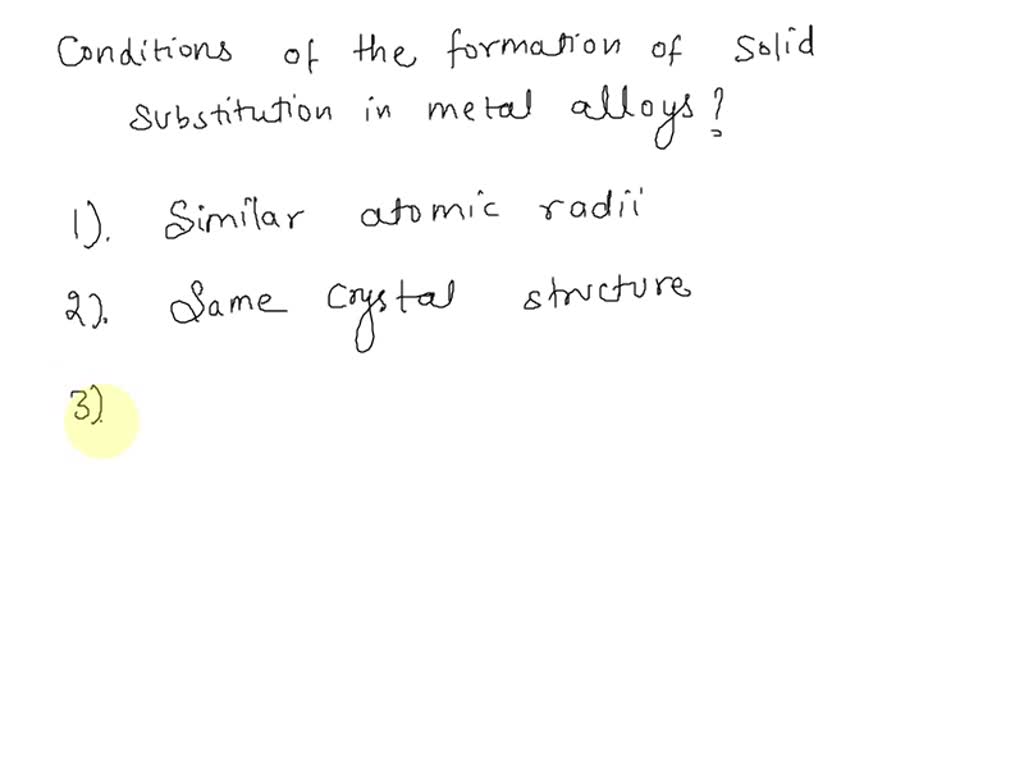 Conditions of the formation of solid
substitution in metal alloys?
1). Similar atomic radii
2). Same crystal structure
3).